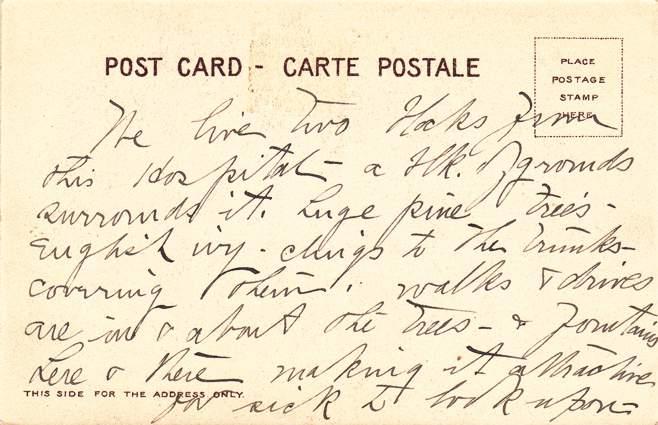 POST CARD - CARTE POSTALE
PLACE
POSTAGE
STAMP
HERE
We live two blocks from
this Hospital - a blk. of grounds
surrounds it. Huge pine trees -
English ivy - clings to the trunks -
covering them. walks & drives
are in & about the trees - & fountains
here & there making it attractive
THIS SIDE FOR THE ADDRESS ONLY.
for sick to look upon -